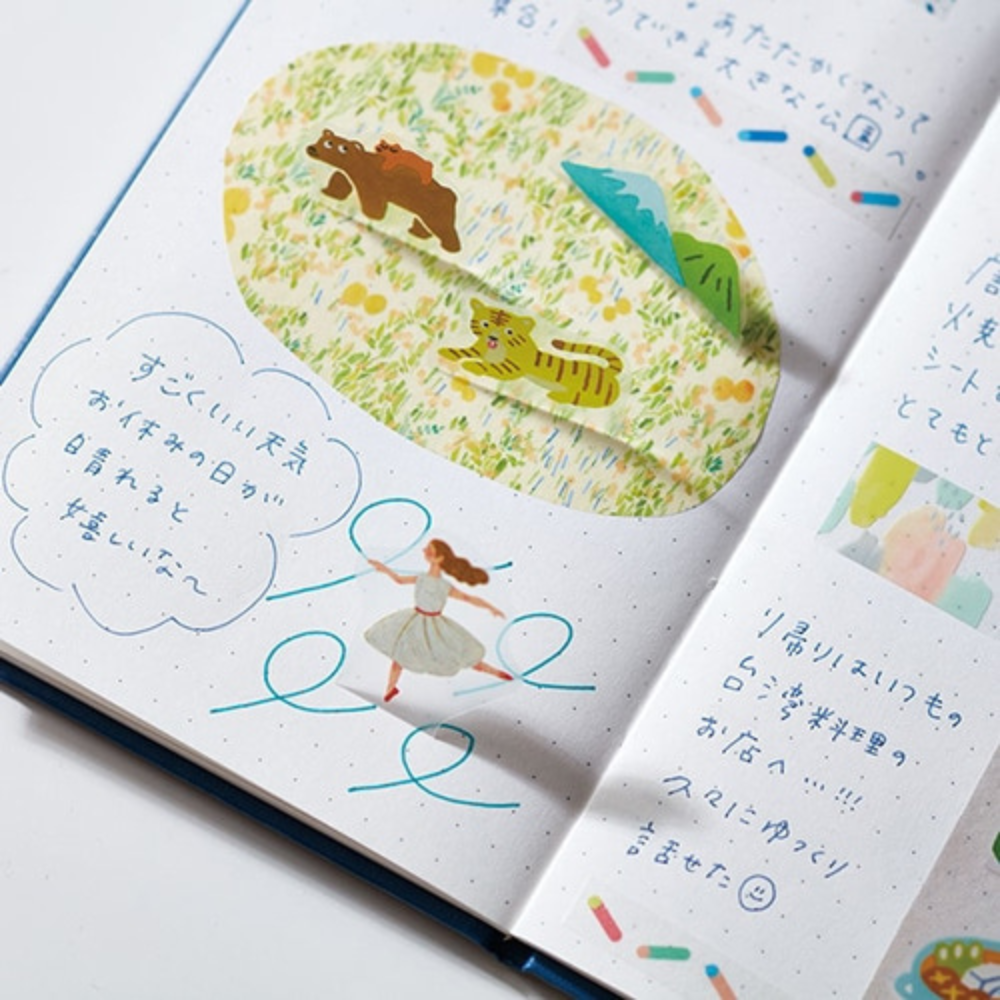 ・あたたかくなって
クできる大きな公園へ。
集合!
すごくいい天気
お休みの日が
日晴れると
嬉しいな〜
焼
シート
とてもと
り帰りはいつもの
台湾料理の
お店へ…!!!
久々にゆっくり
話せた